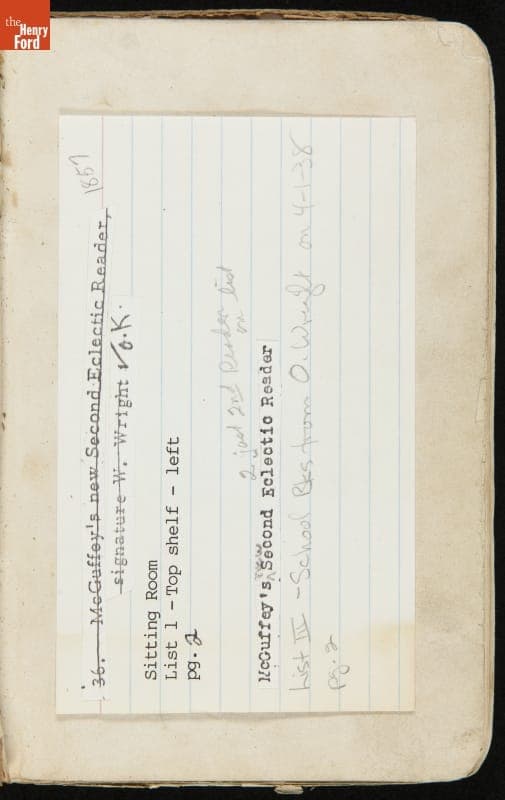 the
Henry
Ford
36. McGuffey's new Second Eclectic Reader, 1857
signature W. Wright √ O.K.
Sitting Room
List 1 - Top shelf - left
pg. 2
2 just 2nd Reader on list
McGuffey's new Second Eclectic Reader
List III - School Bks from O. Wright on 4-1-38
pg. 2